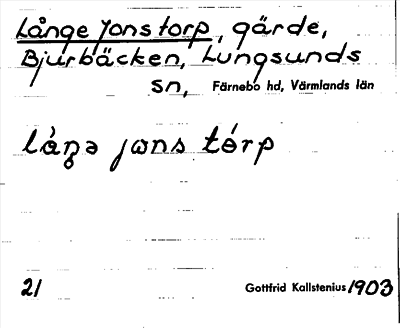 Långe Jonstorp, gärde,
Bjurbäcken, Lungsunds
sn, Färnebo hd, Värmlands län
låŋə jɷns tórp
21 Gottfrid Kallstenius 1903